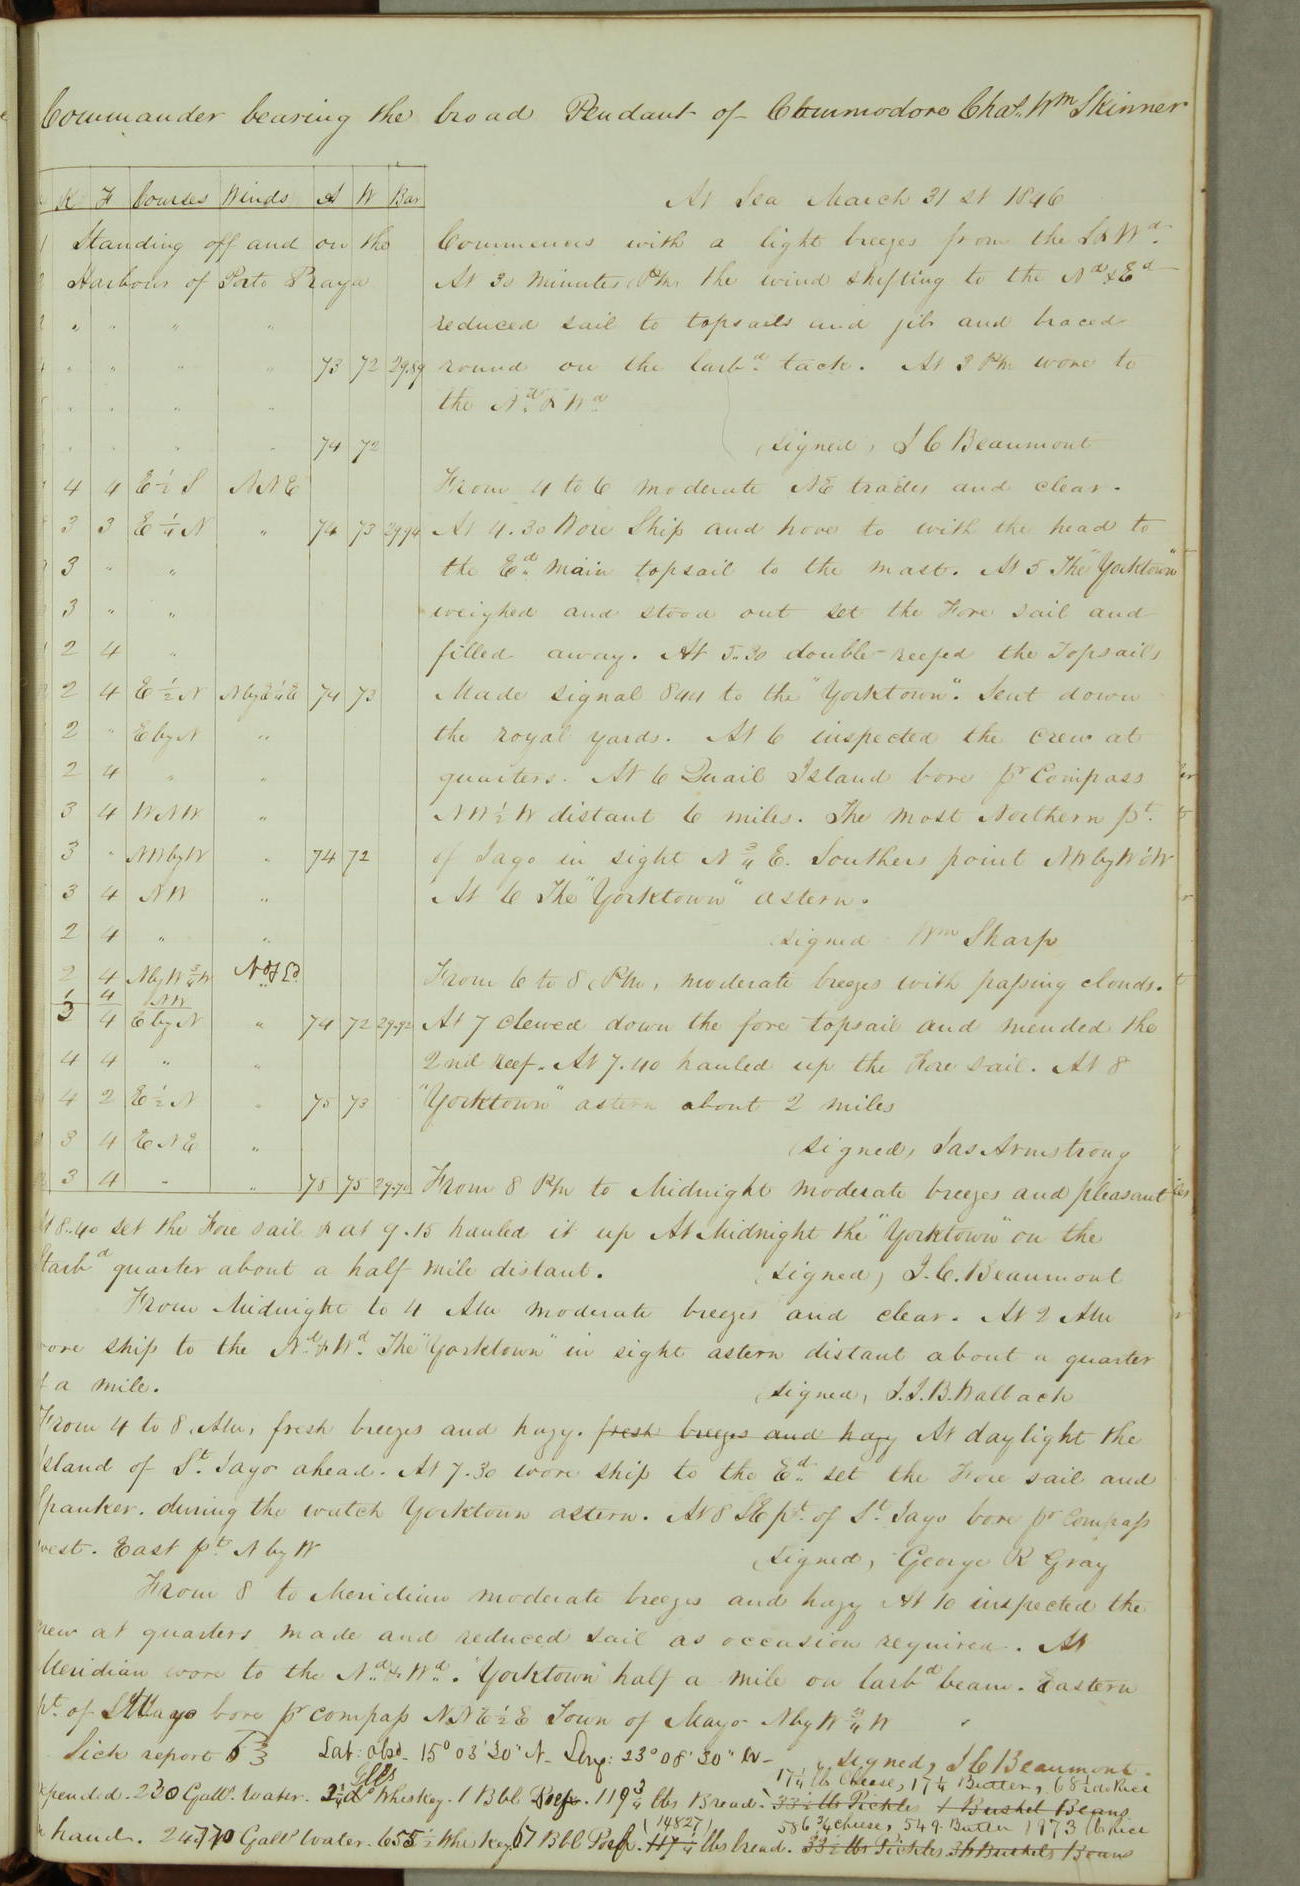 Commander bearing the broad Pendant of Commodore Chas. Wm Skinner
K F Courses Winds A W Bar
At Sea March 31 st 1846
Standing off and on the
Harbour of Porto Praya
" " " "
" " " " 73 72 29.89
" " " "
" " " " 74 72
4 4 E ½ S NNE
3 3 E ¼ N " 74 73 29.94
3 " "
3 " "
2 4 "
2 4 E ½ N NbyE¼E 74 73
2 " E by N "
2 4 " "
3 4 WNW "
3 " NWbyW " 74 72
3 4 NW "
2 4 " "
2 4 NbyW¾W Nd & Ed
1 4 NW
3 4 E by N " 74 72 29.92
4 4 " "
4 2 E ½ N " 75 73
3 4 ENE "
3 4 " " 75 75 29.90
Commences with a light breezes from the S & Wd.
At 30 minutes P.M. the wind shifting to the Nd & Ed
reduced sail to topsails and jib and braced
round on the larbd. tack. At 3 PM wore to
the Nd. & Wd
(signed, J C Beaumont
From 4 to 6 moderate NE trades and clear.
At 4.30 Wore Ship and hove to with the head to
the Ed. Main topsail to the mast. At 5 The "Yorktown"
weighed and stood out set the Fore sail and
filled away. At 5.30 double-reefed the Topsails
Made signal 844 to the "Yorktown". Sent down
the royal yards. At 6 inspected the crew at
quarters. At 6 Quail Island bore pr Compass
NW ½ W distant 6 miles. The most Northern pt.
of Jago in sight N ¾ E. Southern point NWbyW½W
At 6 The "Yorktown" astern.
signed Wm Sharp
From 6 to 8 P.M, moderate breezes with passing clouds.
At 7 clewed down the fore topsail and mended the
2nd reef. At 7.40 hauled up the Fore sail. At 8
"Yorktown" astern about 2 miles
(signed, Jas Armstrong
From 8 PM to Midnight moderate breezes and pleasant
At 8.40 set the Fore sail & at 9.15 hauled it up At Midnight the "Yorktown" on the
Starbd quarter about a half mile distant. (signed, J. C. Beaumont
From Midnight to 4 AM moderate breezes and clear. At 2 AM
wore ship to the Nd. & Wd. The "Yorktown" in sight astern distant about a quarter
of a mile. (signed, J. J. B. Walbach
From 4 to 8 AM, fresh breezes and hazy. fresh breezes and hazy At daylight the
Island of St. Jago ahead. At 7.30 wore ship to the Ed. set the Fore sail and
Spanker. during the watch Yorktown astern. At 8 SE pt. of St. Jago bore pr Compass
west. East pt. N by W (signed, George R Gray
From 8 to Meridian moderate breezes and hazy At 10 inspected the
crew at quarters made and reduced sail as occasion required. At
Meridian wore to the Nd. & Wd. "Yorktown" half a mile on larbd beam. Eastern
pt. of St Jago bore pr compass NNE½E Town of Mayo NbyW¾W
Sick report 53 Lat: obsd. 15° 03' 30" N- Long: 23° 08' 30" W- (signed, J C Beaumont.
Galls 17¼ lb Cheese, 17¼ Butter, 68½ do Rice
Expended. 230 Galls. Water. 2¼ do Whiskey. 1 Bbl Pork. 119¾ lbs Bread. 33½ lbs Pickles 1 Bushel Beans
(14827) 586¾ cheese, 549 Butter 1973 lb Rice
On hand. 24770 Galls Water. 655½ Whiskey 67 Bbl Pork. lbs bread. 33½ lbs Pickles 36 Bushels Beans